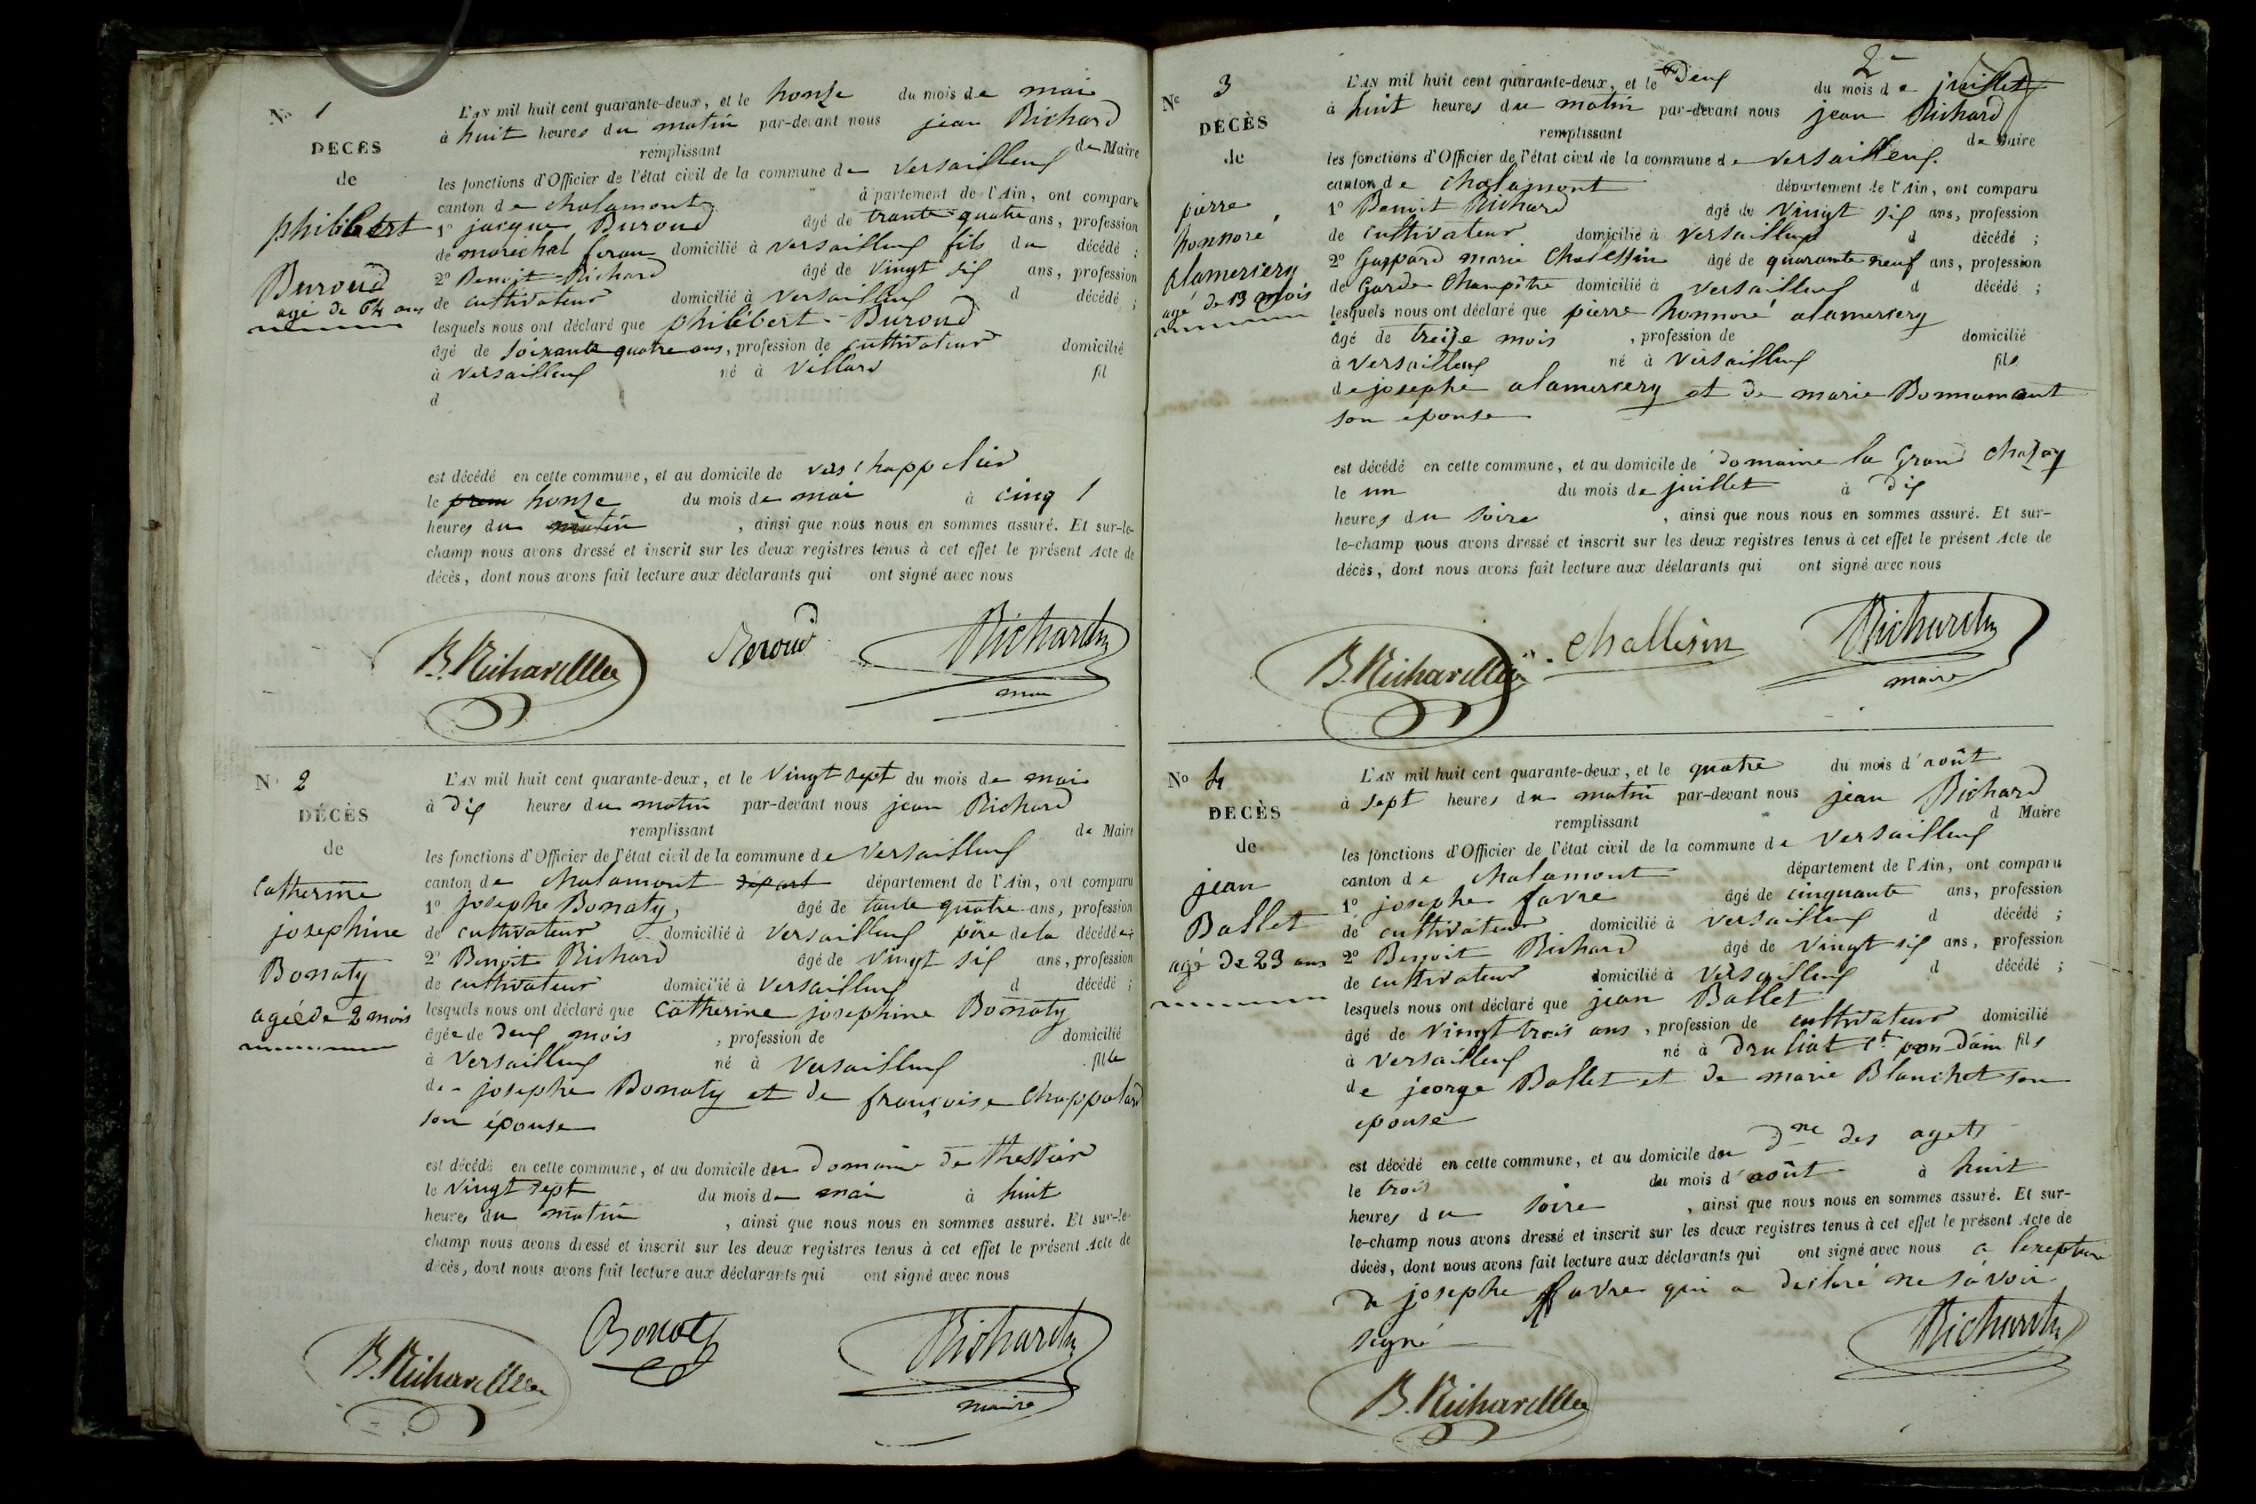 N° 1
DECÈS
de
philibert
Buroud
agé de 64 ans
L'AN mil huit cent quarante-deux, et le honze du mois de mai
à huit heures du matin par-devant nous jean Richard
remplissant de Maire
les fonctions d'Officier de l'état civil de la commune de versailleux
canton de chalamont département de l'Ain, ont comparu
1° jacque Buroud âgé de trante quatre ans, profession
de marechal feran domicilié à versailleux fils du décédé ;
2° Benoit Richard âgé de vingt six ans, profession
de cultivateur domicilié à versailleux d décédé ;
lesquels nous ont déclaré que philibert Buroud
âgé de soixante quatre ans, profession de cultivateur domicilié
à versailleux né à villars fil
d
est décédé en cette commune, et au domicile de vers chappelier
le prem honze du mois de mai à cinq
heures du matin , ainsi que nous nous en sommes assuré. Et sur-le-
champ nous avons dressé et inscrit sur les deux registres tenus à cet effet le présent Acte de
décès, dont nous avons fait lecture aux déclarants qui ont signé avec nous
B. Richard Buroud Richard
maire
N° 2
DÉCÈS
de
catherine
josephine
Bonaty
agée de 2 mois
L'AN mil huit cent quarante-deux, et le vingt sept du mois de mai
à dix heures du matin par-devant nous jean Richard
remplissant de Maire
les fonctions d'Officier de l'état civil de la commune de versailleux
canton de chalamont départ département de l'Ain, ont comparu
1° josephe Bonaty, âgé de tante quatre ans, profession
de cultivateur domicilié à versailleux père de la décédée ;
2° Benoit Richard âgé de vingt six ans, profession
de cultivateur domicilié à versailleux d décédé ;
lesquels nous ont déclaré que catherine josephine Bonaty
âgée de deux mois , profession de domicilié
à versailleux né à versailleux fille
de josephe Bonaty et de françoise chappolard
son épouse
est décédé en cette commune, et au domicile du Domaine de thessier
le vingt sept du mois de mai à huit
heures du matin , ainsi que nous nous en sommes assuré. Et sur-le-
champ nous avons dressé et inscrit sur les deux registres tenus à cet effet le présent Acte de
décès, dont nous avons fait lecture aux déclarants qui ont signé avec nous
B. Richard Bonaty Richard
maire
2
N° 3
DÉCÈS
de
pierre
honnoré
alamercery
agé de 13 mois
L'AN mil huit cent quarante-deux, et le Deux du mois de juillet
à huit heures du matin par-devant nous jean Richard
remplissant de Maire
les fonctions d'Officier de l'état civil de la commune de versailleux
canton de chalamont département de l'Ain, ont comparu
1° Benoit Richard âgé de vingt six ans, profession
de cultivateur domicilié à versailleux d décédé ;
2° Gaspard marie Challesin âgé de quarante neuf ans, profession
de Garde Champêtre domicilié à versailleux d décédé ;
lesquels nous ont déclaré que pierre honnoré alamercery
âgé de treize mois , profession de domicilié
à versailleux né à versailleux fils
de josephe alamercery et de marie Bonnamant
son épouse
est décédé en cette commune, et au domicile de domaine la Grand Chazay
le un du mois de juillet à dix
heures du soire , ainsi que nous nous en sommes assuré. Et sur-
le-champ nous avons dressé et inscrit sur les deux registres tenus à cet effet le présent Acte de
décès, dont nous avons fait lecture aux déclarants qui ont signé avec nous
B. Richard challesin Richard
maire
N° 4
DECÈS
de
jean
Ballet
agé de 23 ans
L'AN mil huit cent quarante-deux, et le quatre du mois d'août
à sept heures du matin par-devant nous jean Richard
remplissant d Maire
les fonctions d'Officier de l'état civil de la commune de versailleux
canton de chalamont département de l'Ain, ont comparu
1° josephe favre âgé de cinquante ans, profession
de cultivateur domicilié à versailleux d décédé ;
2° Benoit Richard âgé de vingt six ans, profession
de cultivateur domicilié à versailleux d décédé ;
lesquels nous ont déclaré que jean Ballet
âgé de vingt trois ans, profession de cultivateur domicilié
à versailleux né à druliat pon d'ain fils
de jeorge Ballet et de marie Blanchet son
epouse
est décédé en cette commune, et au domicile du Dne des agets
le trois du mois d'août à huit
heures du soire , ainsi que nous nous en sommes assuré. Et sur-
le-champ nous avons dressé et inscrit sur les deux registres tenus à cet effet le présent Acte de
décès, dont nous avons fait lecture aux déclarants qui ont signé avec nous a lexeption
de josephe favre qui a declaré ne savoir
signé
B. Richard Richard